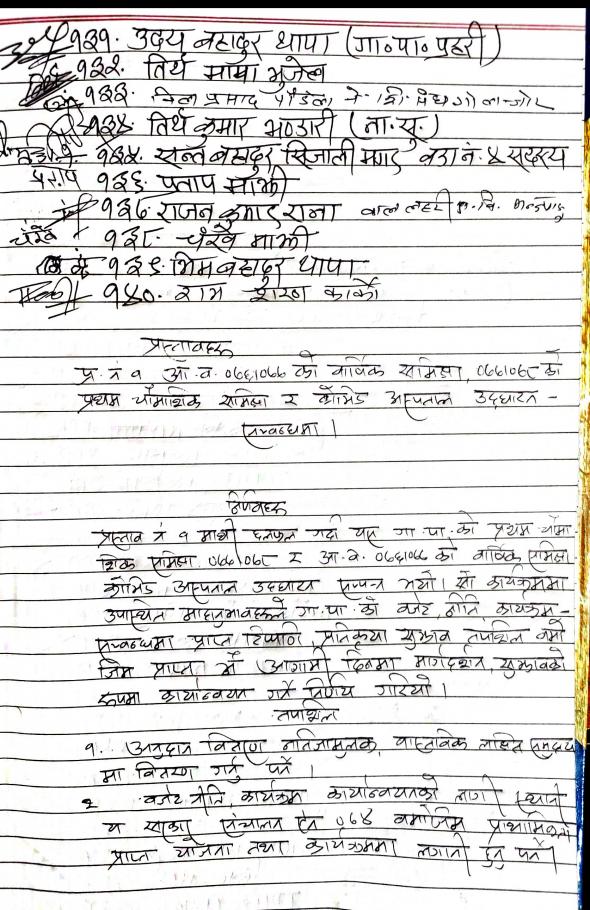 १३१. उदय बहादुर थापा (गा०पा० प्रहरी)
१३२. तिर्थ माया भुजेल
१३३.
१३४. तिर्थ कुमार भण्डारी (ना.सु.)
१३५. सन्त बहादुर सिजाली मगर वडा नं. ४ सदस्य
१३६. प्रताप माझी
१३७. राजन कुमार राना बाल लहरी
चंखे १३८. चंखे माझी
१३९. भिम बहादुर थापा
१४०. राम शरण कार्की
प्रस्तावहरु
प्र. नं १ आ. व. ०७६।०७७ को वार्षिक समिक्षा, ०७७।०७८ को
प्रथम चौमासिक समिक्षा र कोभिड अस्पताल उद्घाटन -
सम्बन्धमा ।
निर्णयहरु
प्रस्ताव नं १ माथी छलफल गर्दा यस गा. पा. को प्रथम चौमा
सिक समिक्षा ०७७।०७८ र आ. व. ०७६।०७७ को वार्षिक समिक्षा
कोभिड अस्पताल उद्घाटन सम्पन्न भयो। सो कार्यक्रममा
उपस्थित माहानुभावहरुले गा. पा. को वजेट, नीति, कार्यक्रम -
सम्बन्धमा प्राप्त टिप्पणी प्रतिक्रिया सुझाव तपशिल बमो
जिम प्राप्त भै आगामी दिनमा मार्गदर्शन, सुझावको
रुपमा कार्यान्वयन गर्ने निर्णय गरियो ।
तपशिल
१. अनुदान वितरण नतिजामुलक, वास्तविक लक्षित समुदाय
मा वितरण गर्नु पर्ने ।
२ वजेट नीति, कार्यक्रम कार्यान्वयनको लागी स्थानी
य सरकार संचालन ऐन ०७४ बमोजिम प्राथामिकता
प्राप्त योजना तथा कार्यक्रममा लगानी हुनु पर्ने।